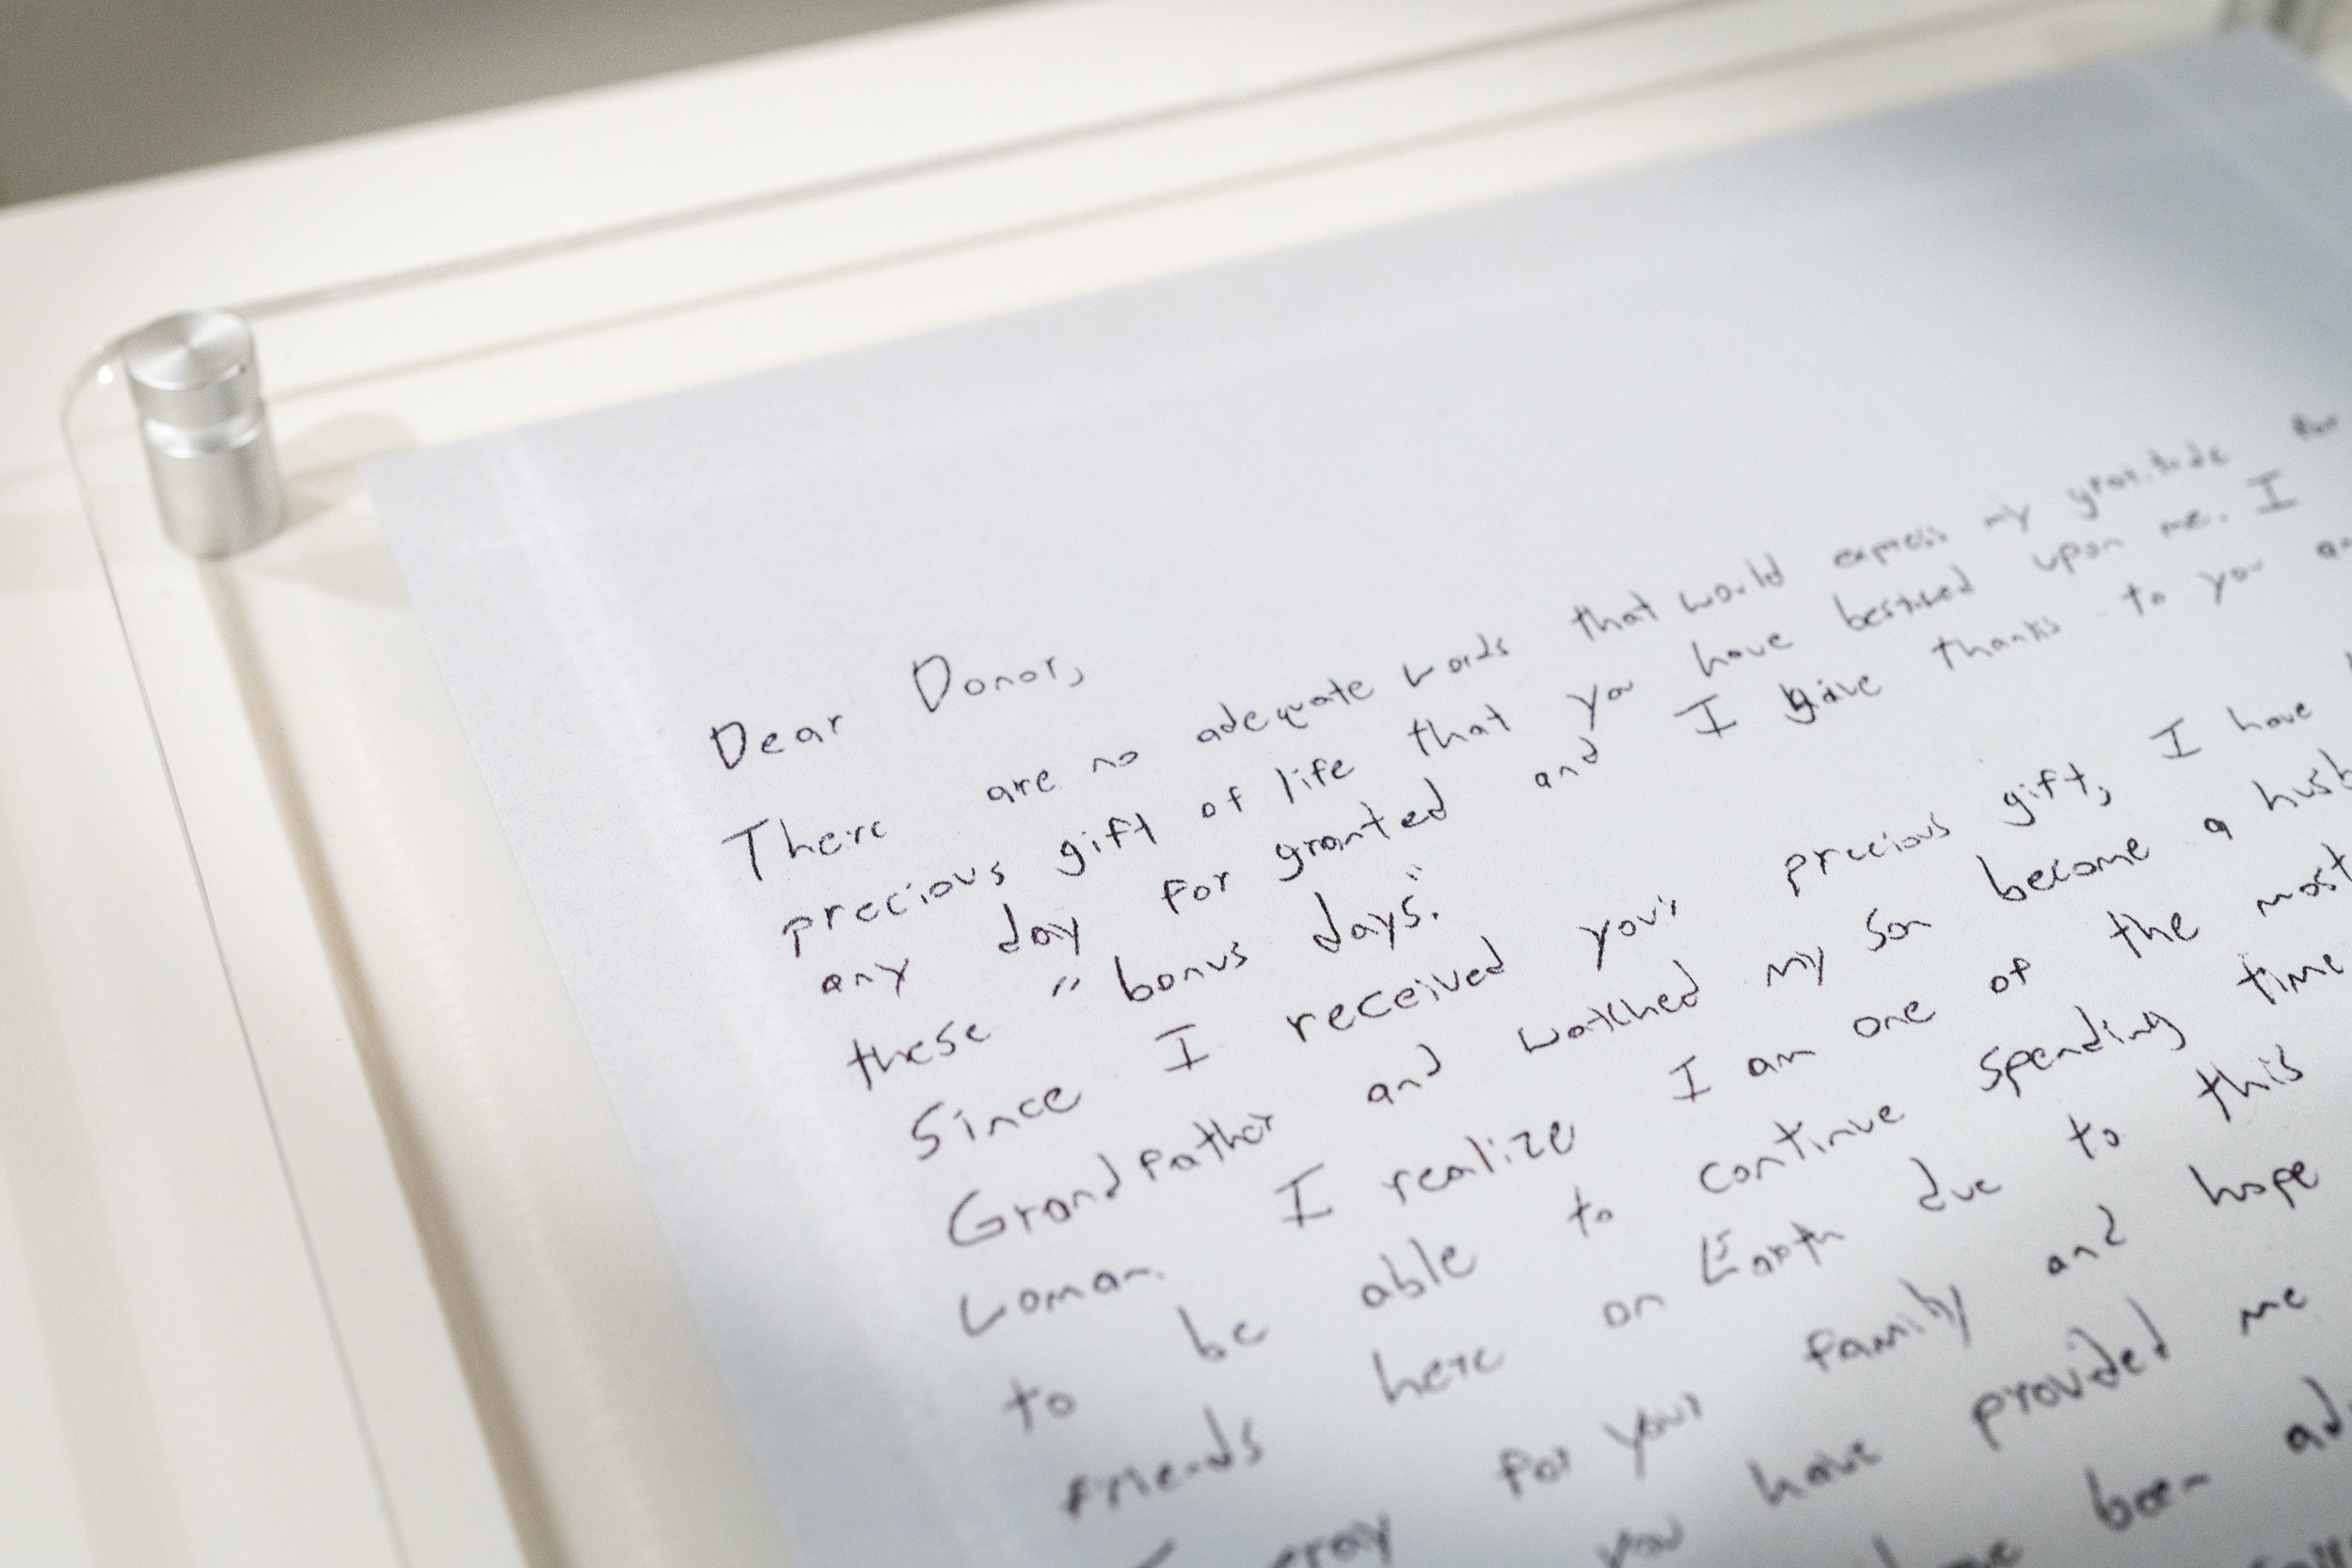 Dear Donor,
There are no adequate words that would express my gratitude for
precious gift of life that you have bestowed upon me. I
any day for granted and I give thanks to you
these "bonus days."
Since I received your precious gift, I have
Grandfather and watched my son become a
woman. I realize I am one of the most
to be able to continue spending time
friends here on Earth due to this
I pray for your family and hope
you have provided me
been